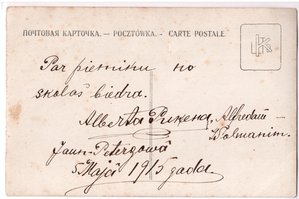 ПОЧТОВАЯ КАРТОЧКА. — POCZTÓWKA. — CARTE POSTALE
Par piemiņu no
skolas biedra.
Alberta Alfredam
Jaun-Pētergovā
5 Maijā 1915 gada.